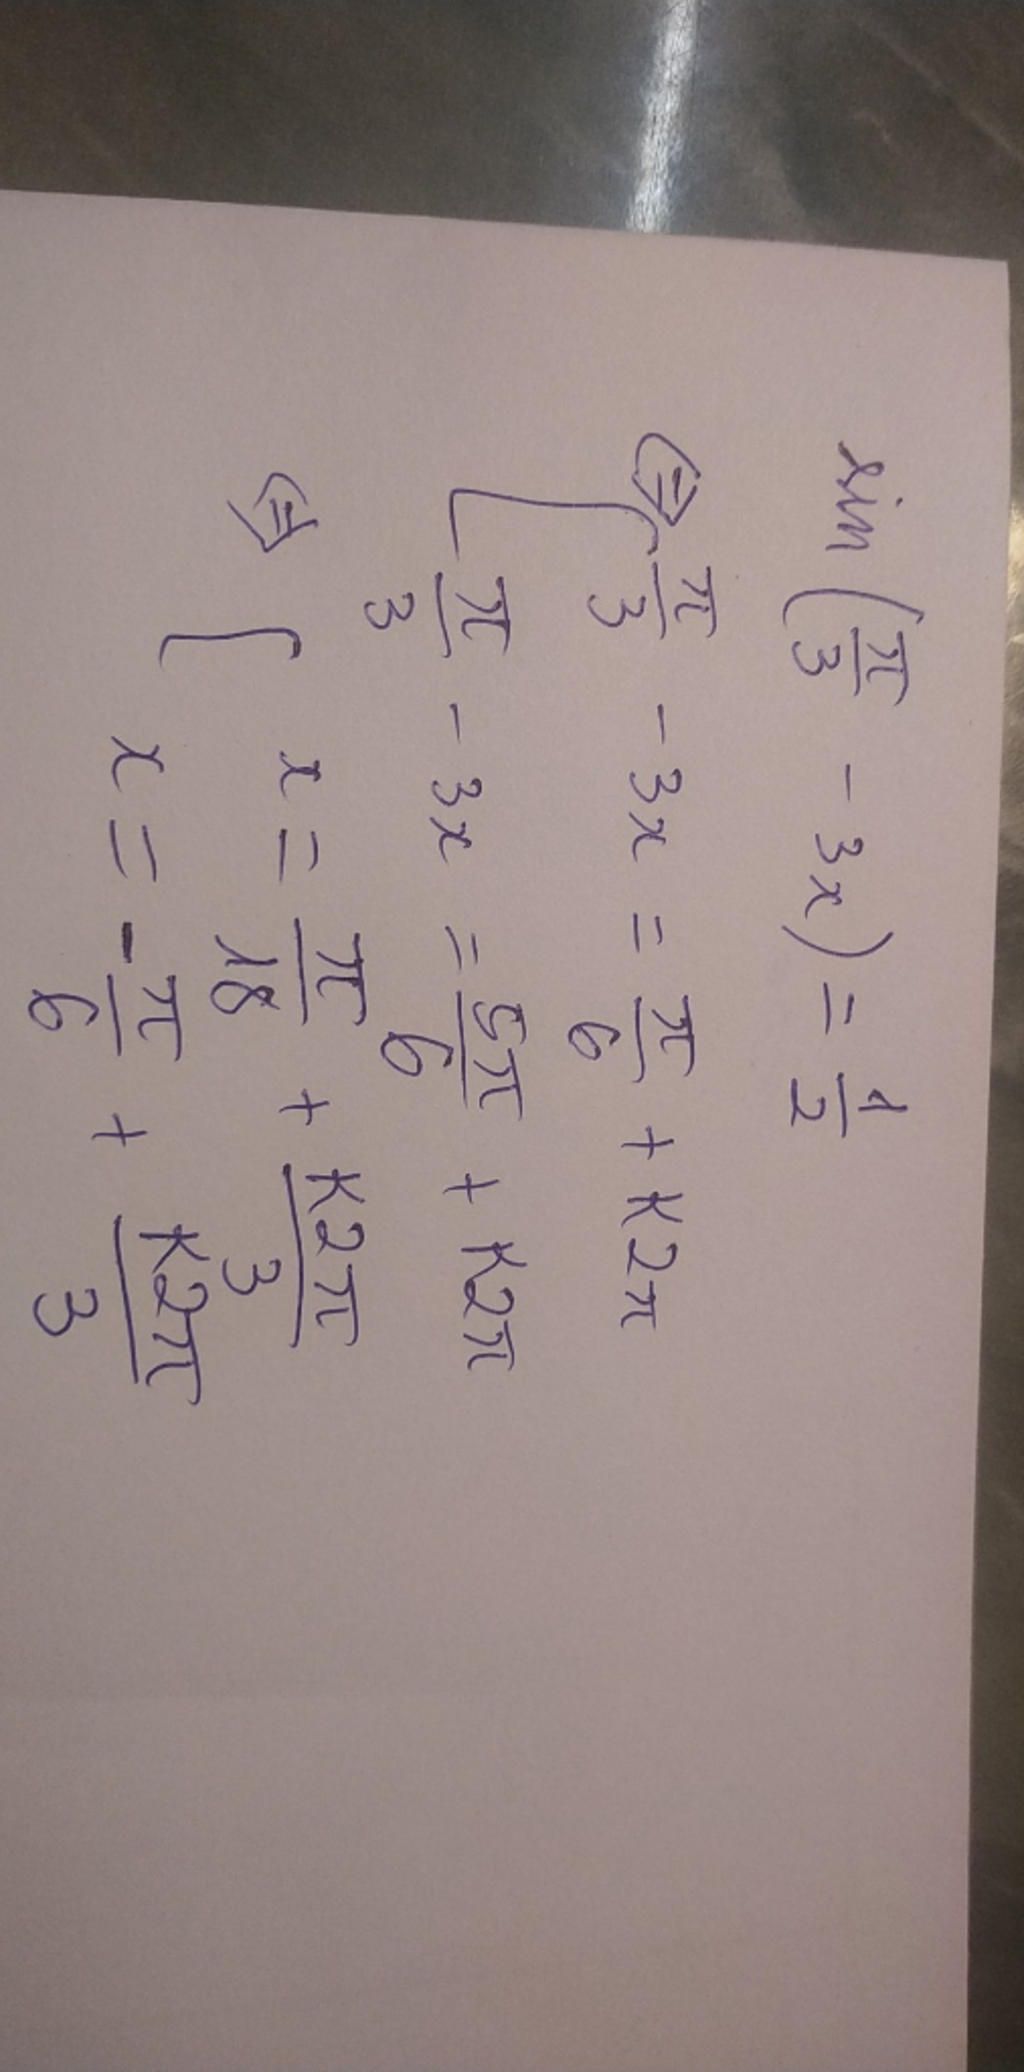 sin(π/3 - 3x) = 1/2
⇔ [ π/3 - 3x = π/6 + K2π
π/3 - 3x = 5π/6 + K2π
⇔ [ x = π/18 + K2π/3
x = -π/6 + K2π/3